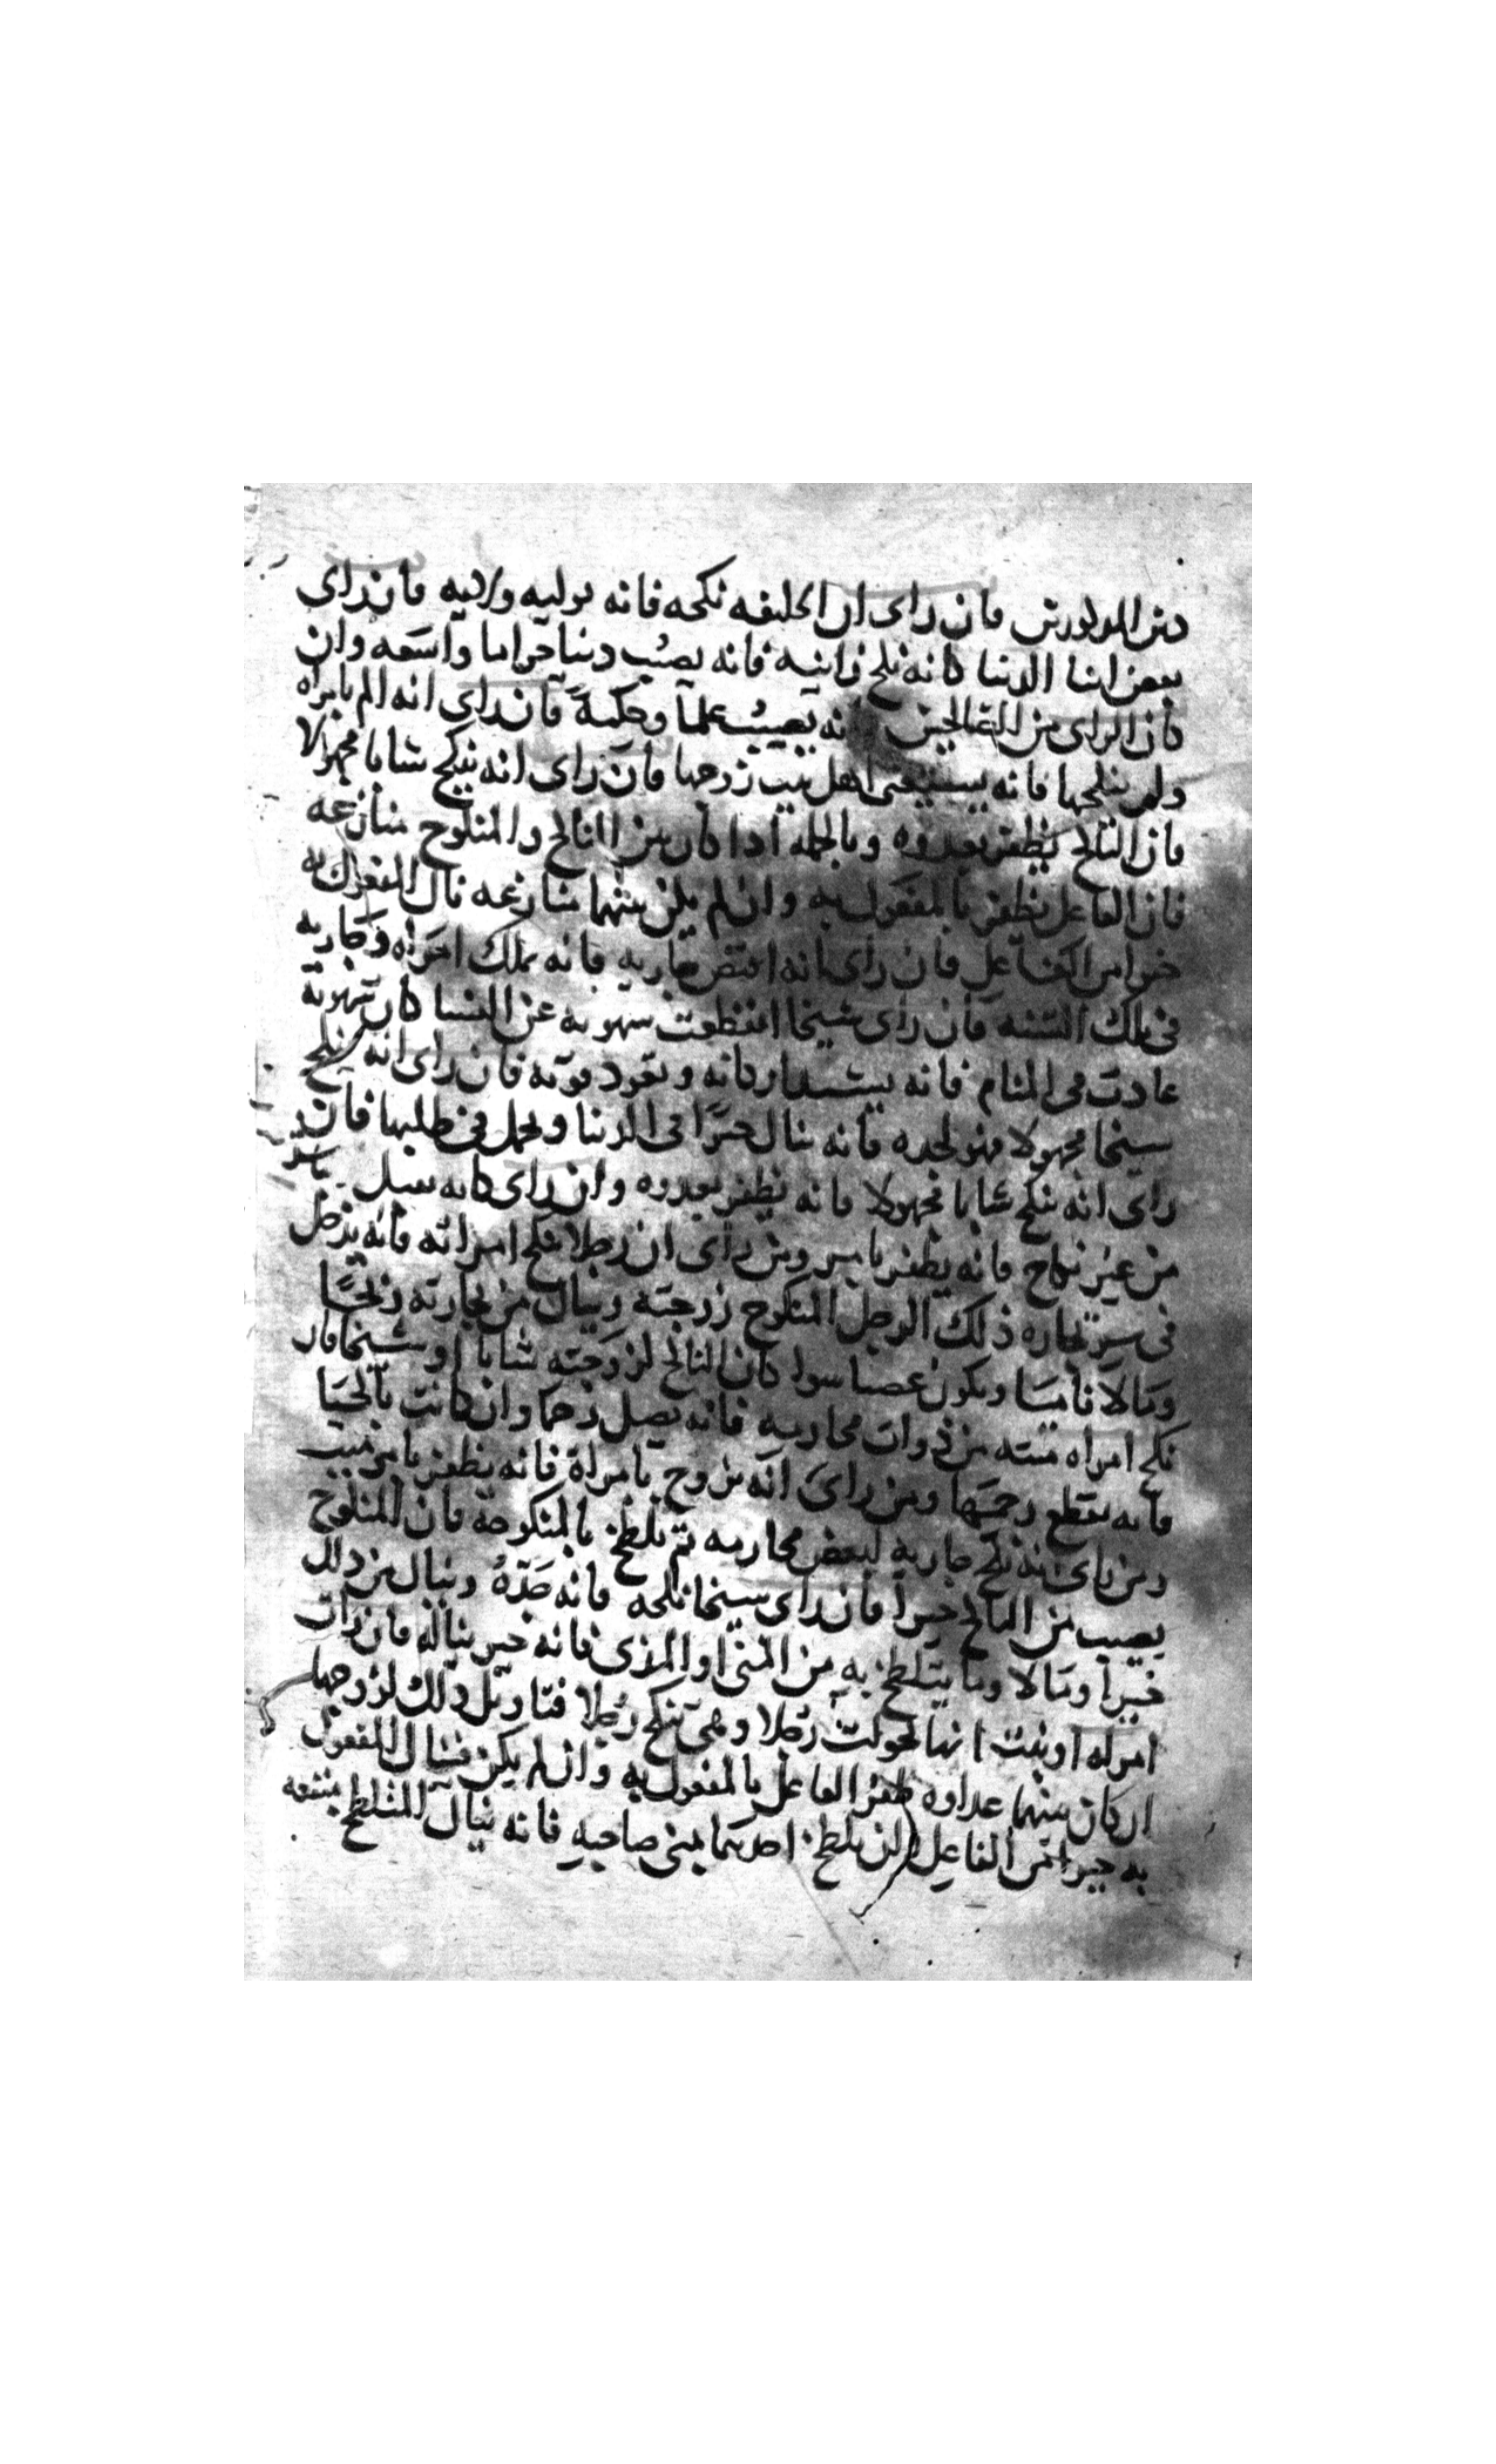 من المذكورين فان راى ان الخليفه نكحه فانه يوليه ولايه فان راى
بعض ابنا الدنيا كانه نكح زانيه فانه يصيب دنيا حراما واسعه وان
كان الراى من الصالحين فانه يصيب علما وحكمة فان راى انه الم بامراه
ولم ينكحها فانه اهل بيت زوجها فان راى انه ينكح شابا مجهولا
فان الناكح يظفر بعدوه وبالجمله اذا كان بين الناكح والمنكوح منازعه
فان الفاعل يظفر بالمفعول به وان لم يكن بينهما منازعه نال المفعول به
خيرا من الفاعل فان راى انه افتض جاريه فانه يملك امراه وجاريه
فى تلك السنه فان راى شيخا انقطعت شهوته عن النسا كان شهوته
عادت فى المنام فانه وتعود قوته فان راى انه ينكح
شيخا مجهولا فهو لجده فانه ينال خيرا فى الدنيا فى طلبها فان
راى انه ينكح شابا مجهولا فانه يظفر بعدوه وان راى كانه
من غير نكاح فانه يظفر بامر ومن راى ان رجلا ينكح امراته فانه يدخل
فى ذلك الرجل المنكوح زوجته وينال من تجارته ربحا
ومالا ناميا ويكون سوا كان الناكح لزوجته شابا او شيخا فان
نكح امراه ميته من ذوات محارمه فانه يصل رحما وان كانت بالحيا
فانه يقطع رحمها ومن راى انه تزوج بامراة فانه يظفر بامر ميت
ومن راى انه نكح جاريه لبعض محارمه ثم تلطخ بالمنكوحة فان المنكوح
يصيب من الناكح خيرا فان راى شيخا نكحه فانه جده وينال من ذلك
خيرا ومالا وما يتلطخ به من المنى او المذى فانه خير يناله فان رات
امراه او بنت انها تحولت رجلا وهى تنكح رجلا فتاويل ذلك لزوجها
ان كان بينهما عداوه ظفر الفاعل بالمفعول به وان لم يكن فينال المفعول
به خيرا من الفاعل تلطخ احدهما بمنى صاحبه فانه ينال المتلطخ منفعه